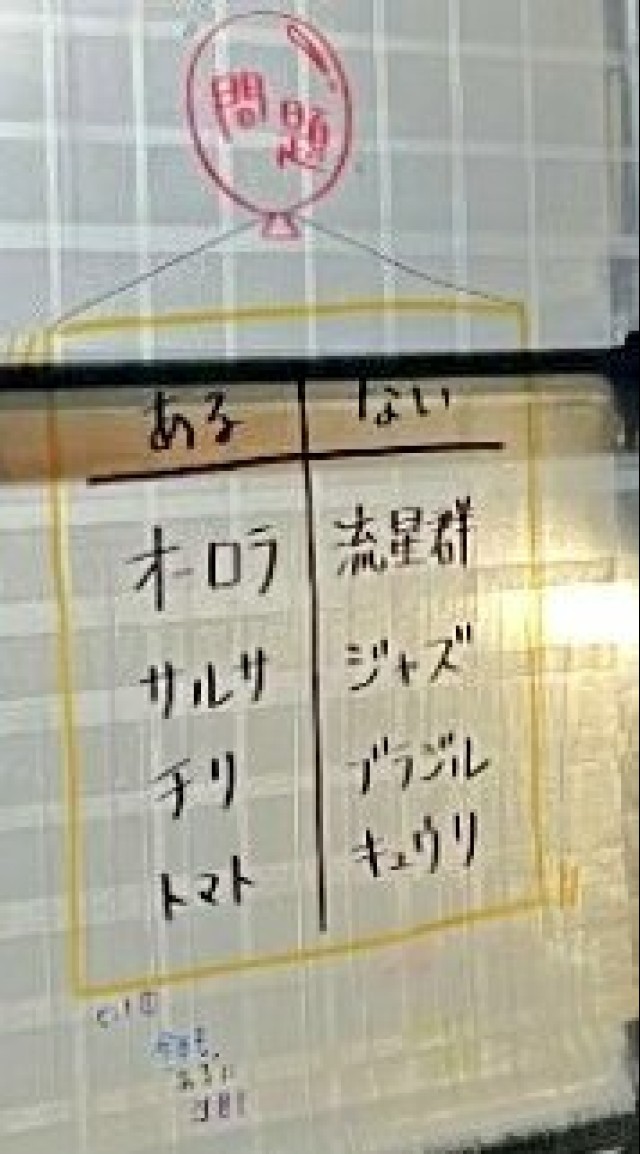 問題
ある ない
オーロラ 流星群
サルサ ジャズ
チリ ブラジル
トマト キュウリ